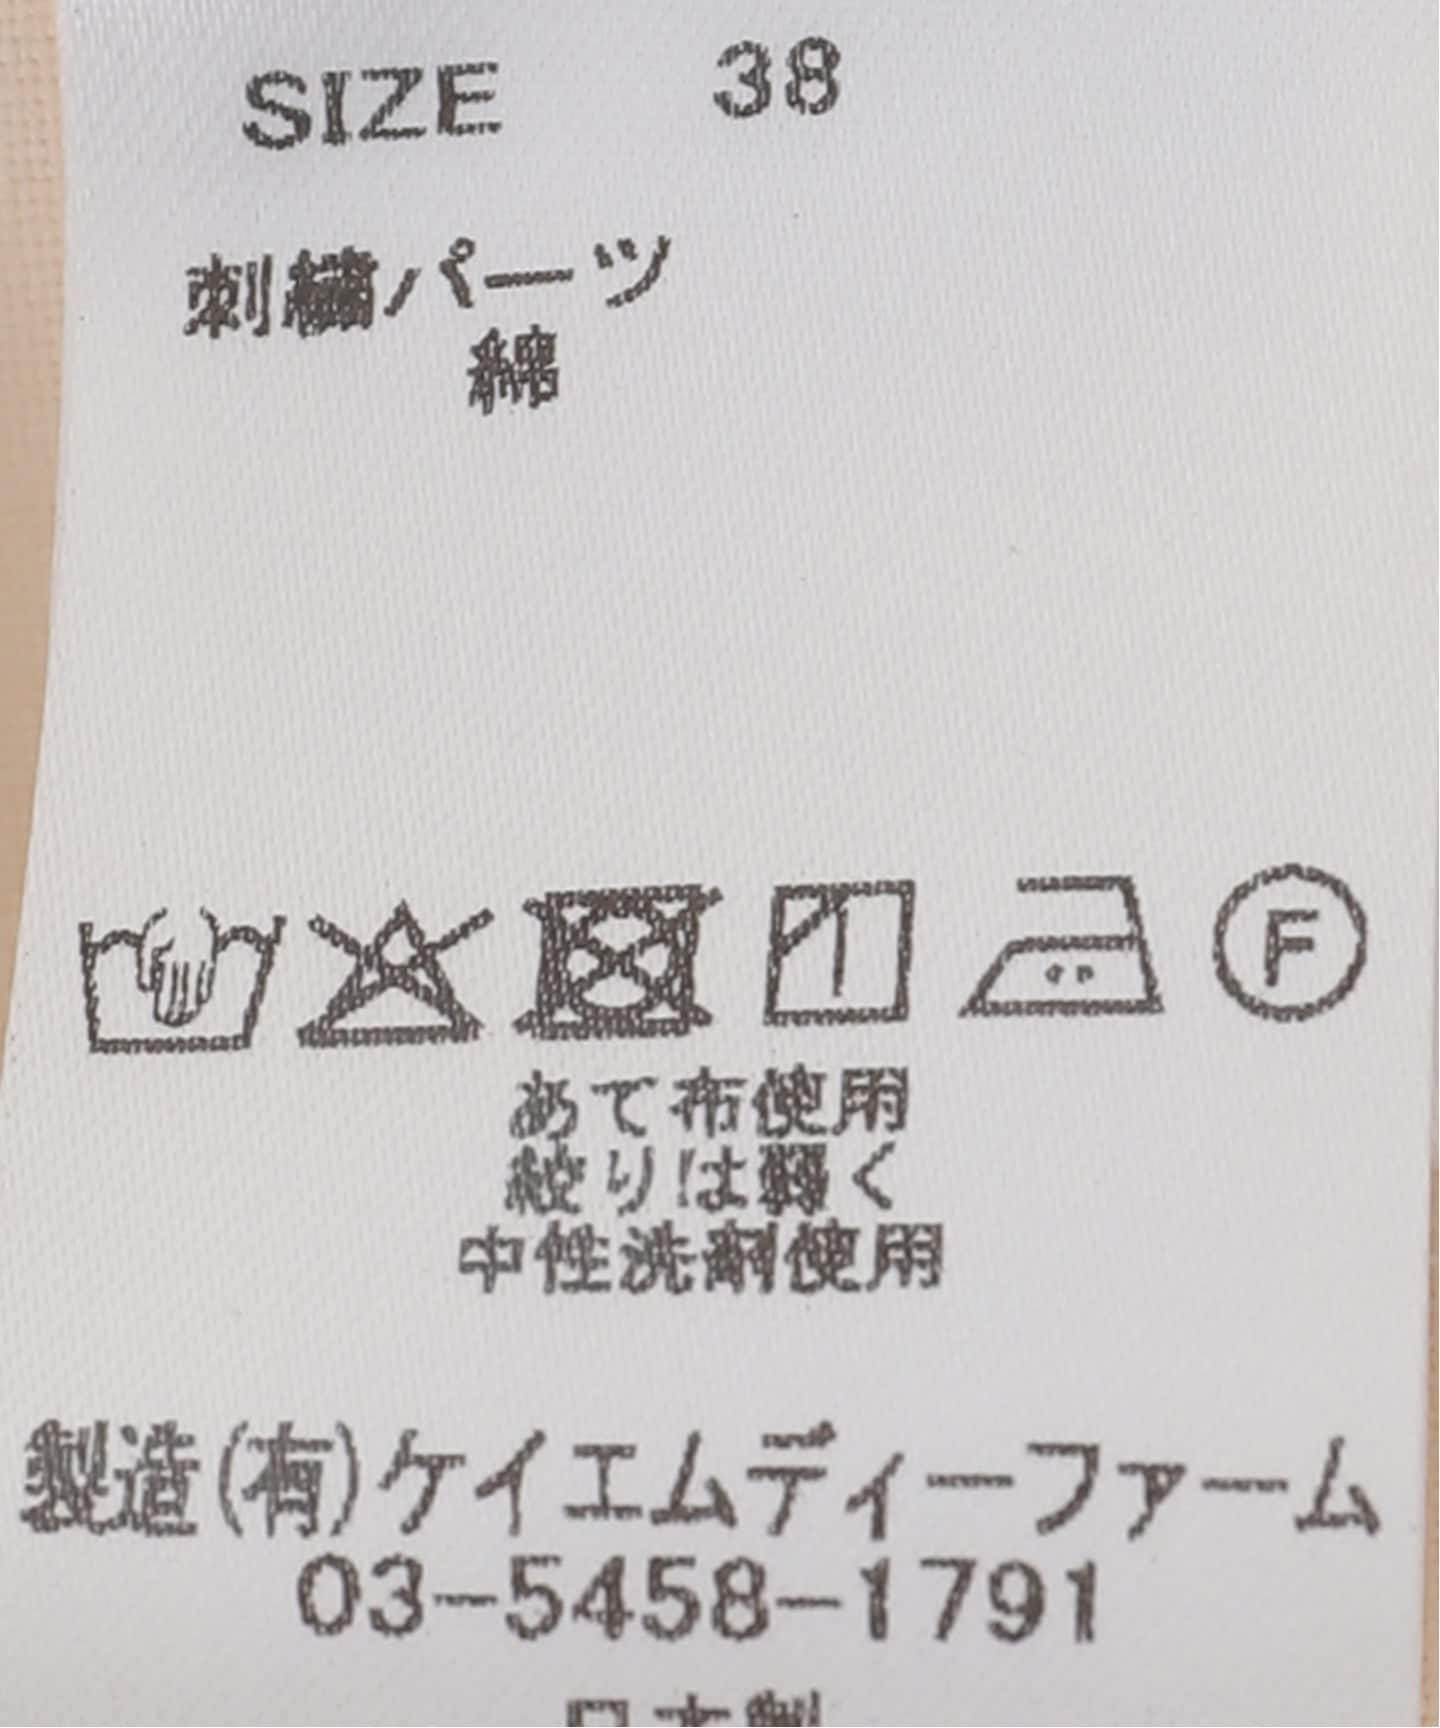 SIZE 38
刺繍パーツ
綿
F
あて布使用
絞りは弱く
中性洗剤使用
製造(有)ケイエムディーファーム
03-5458-1791
日本製